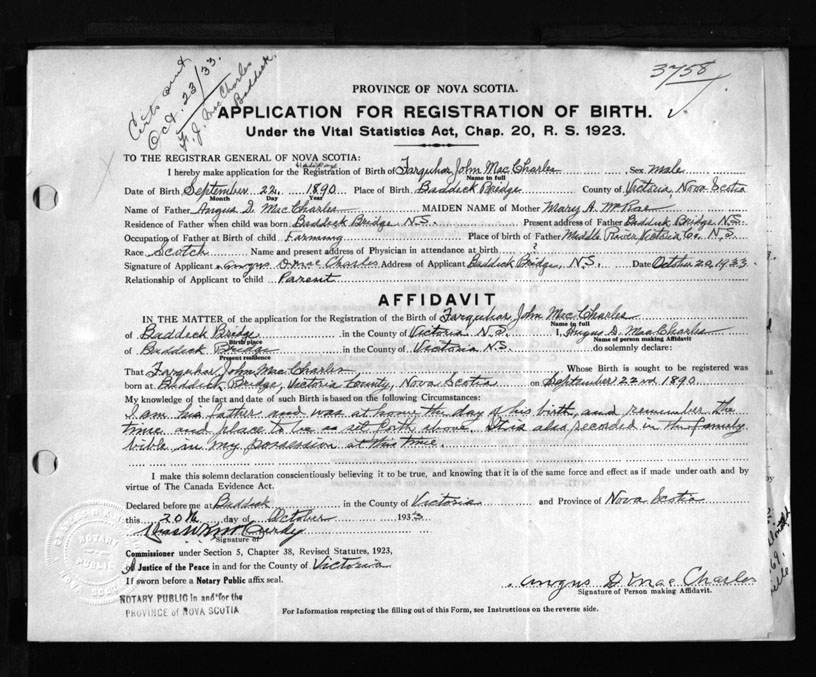 3758
Oct. 23/33.
F. J. MacCharles
Baddeck.
PROVINCE OF NOVA SCOTIA.
APPLICATION FOR REGISTRATION OF BIRTH.
Under the Vital Statistics Act, Chap. 20, R. S. 1923.
TO THE REGISTRAR GENERAL OF NOVA SCOTIA:
I hereby make application for the Registration of Birth of Farquhar John MacCharles Sex Male
Name in full
Date of Birth September 22, 1890 Place of Birth Baddeck Bridge County of Victoria, Nova Scotia
Month Day Year
Name of Father Angus D. MacCharles MAIDEN NAME of Mother Mary A. McRae
Residence of Father when child was born Baddeck Bridge N.S. Present address of Father Baddeck Bridge N.S.
Occupation of Father at Birth of child Farming Place of birth of Father Middle River, Victoria Co. N.S.
Race Scotch Name and present address of Physician in attendance at birth ?
Signature of Applicant Angus D Mac Charles Address of Applicant Baddeck Bridge, N.S. Date October 20, 1933
Relationship of Applicant to child Parent
AFFIDAVIT
IN THE MATTER of the application for the Registration of the Birth of Farquhar John MacCharles
Name in full
of Baddeck Bridge in the County of Victoria N.S. I, Angus D. MacCharles
Birth place Name of person making Affidavit
of Baddeck Bridge in the County of Victoria N.S. do solemnly declare:
Present residence
That Farquhar John MacCharles, Whose Birth is sought to be registered was
born at Baddeck Bridge, Victoria County, Nova Scotia on September 22nd 1890
My knowledge of the fact and date of such Birth is based on the following Circumstances:
I am his father and was at home the day of his birth, and remember the
time and place to be as set forth above. It is also recorded in the family
bible in my possession at this time.
I make this solemn declaration conscientiously believing it to be true, and knowing that it is of the same force and effect as if made under oath and by
virtue of The Canada Evidence Act.
Declared before me at Baddeck in the County of Victoria and Province of Nova Scotia
this 20th day of October 1933
Signature of
Commissioner under Section 5, Chapter 38, Revised Statutes, 1923,
of Justice of the Peace in and for the County of Victoria
If sworn before a Notary Public affix seal.
Angus D Mac Charles
Signature of Person making Affidavit.
NOTARY PUBLIC in and for the
PROVINCE of NOVA SCOTIA
For Information respecting the filling out of this Form, see Instructions on the reverse side.